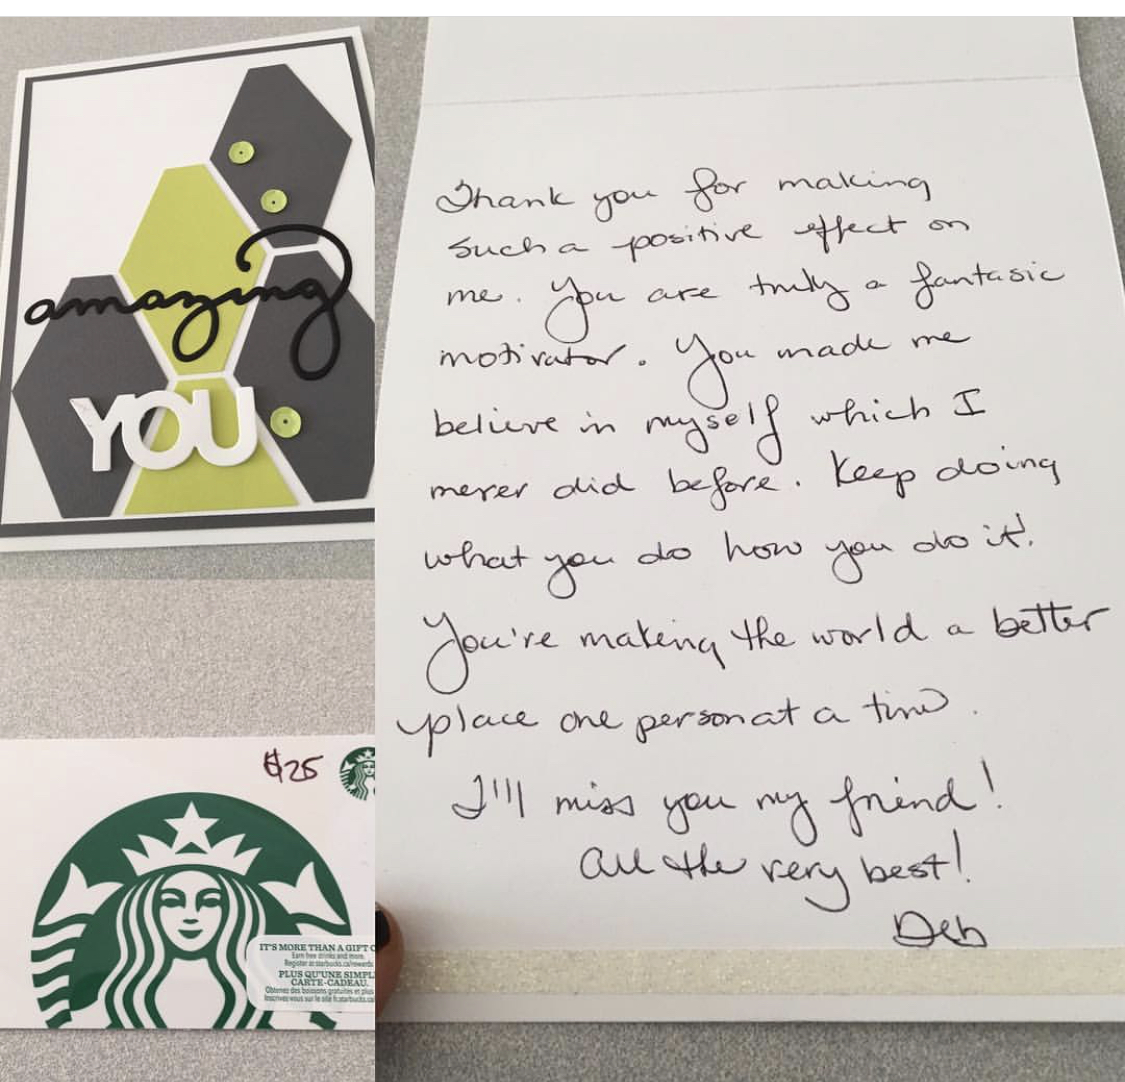 amazing
YOU
$25
IT'S MORE THAN A GIFT C
Earn free drinks and more.
Register at starbucks.ca/rewards
PLUS QU'UNE SIMPL
CARTE-CADEAU.
Obtenez des boissons gratuites et plus
Inscrivez-vous sur le site fr.starbucks.ca/
Thank you for making
such a positive effect on
me. You are truly a fantasic
motivator. You made me
believe in myself which I
never did before. Keep doing
what you do how you do it!
You're making the world a better
place one person at a time.
I'll miss you my friend!
All the very best!
Deb